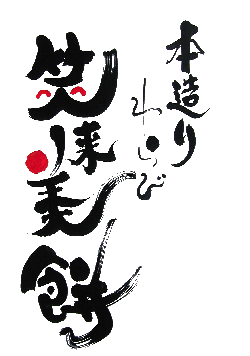 本造り
わらび
笑来美餅